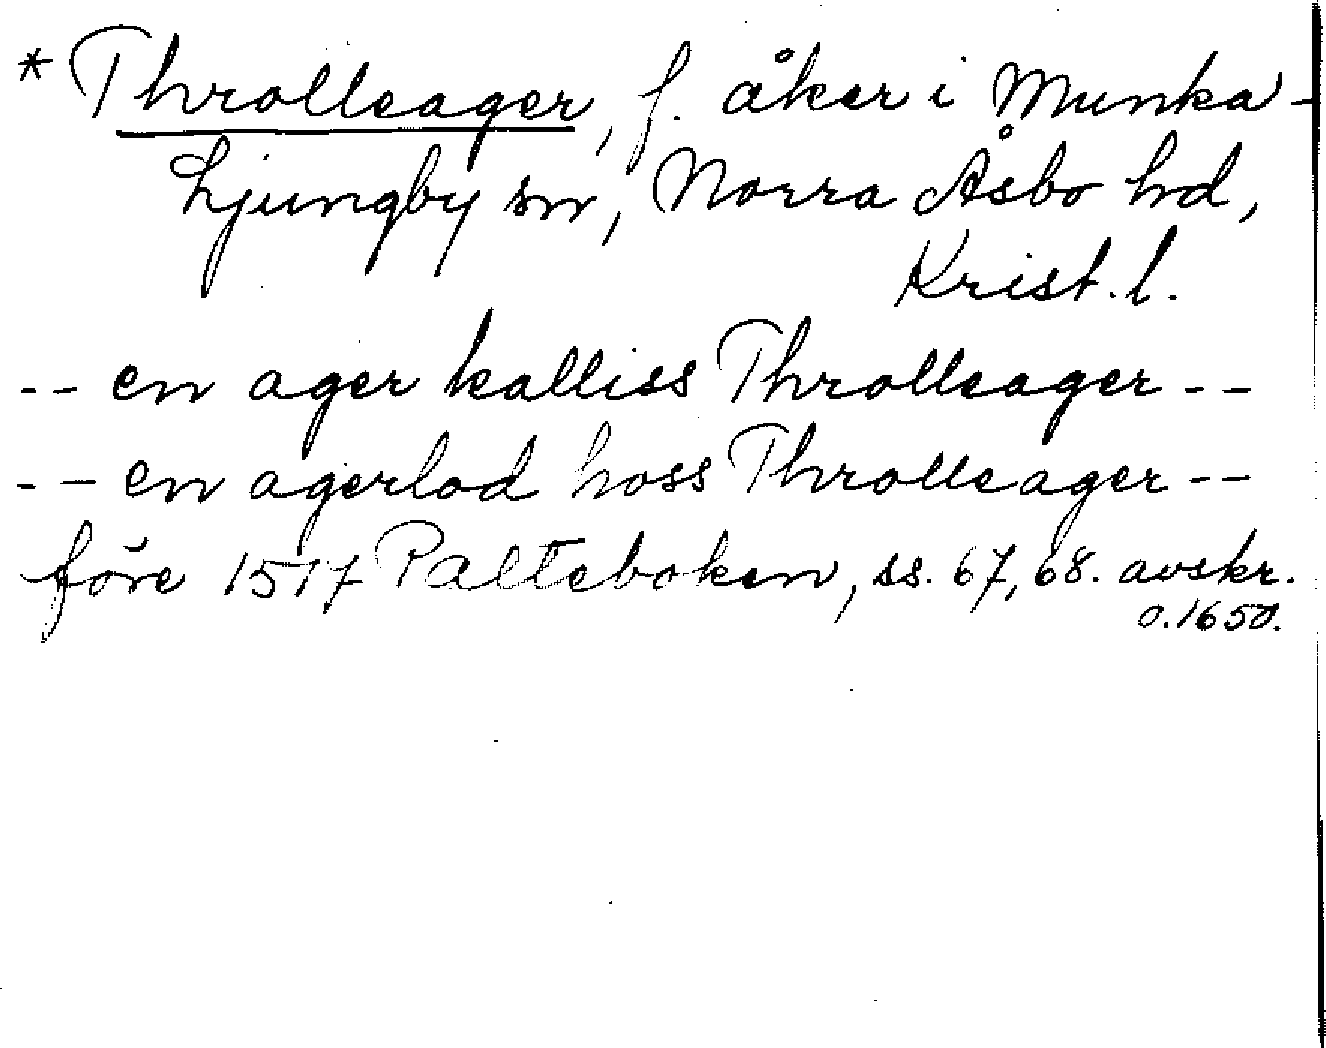 * Throlleager, f. åker i Munka-
Ljungby sn, Norra Åsbo hd,
Krist. l.
-- en ager kalliss Throlleager --
-- en agerlod hoss Throlleager --
före 1517 Palteboken, ss. 67, 68. avskr.
o. 1650.